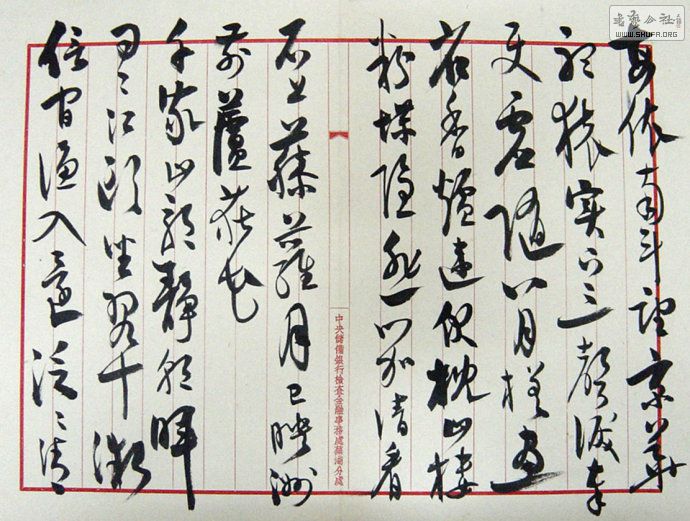 每依南斗望京華
聽猿實下三聲淚奉
使虛隨八月槎畫
省香爐違伏枕山樓
粉堞隱悲笳請看
石上藤蘿月已映洲
前蘆荻花
千家山郭靜朝暉
日〻江頭坐翠微
信宿漁人還泛〻清
中央儲備銀行檢查金融事務處蕪湖分處
書藝公社
WWW.SHUFA.ORG